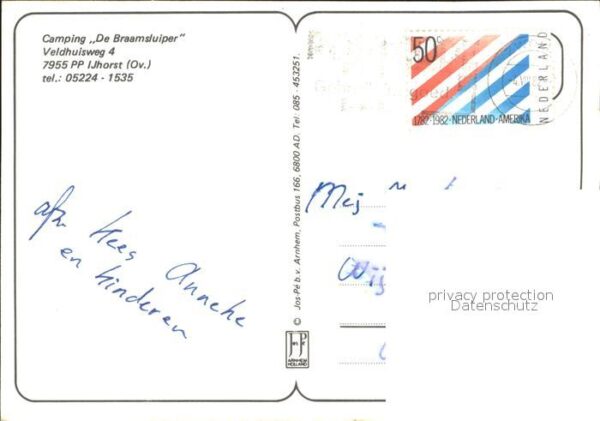 Camping „De Braamsluiper"
Veldhuisweg 4
7955 PP IJhorst (Ov.)
tel.: 05224 - 1535
afz. Kees Anneke
en kinderen
© Jos-Pé b.v. Arnhem, Postbus 166, 6800 AD. Tel: 085 - 453251.
JosPé
ARNHEM
HOLLAND
50c
1782·1982·NEDERLAND·AMERIKA
NEDERLAND
Mej
privacy protection
Datenschutz